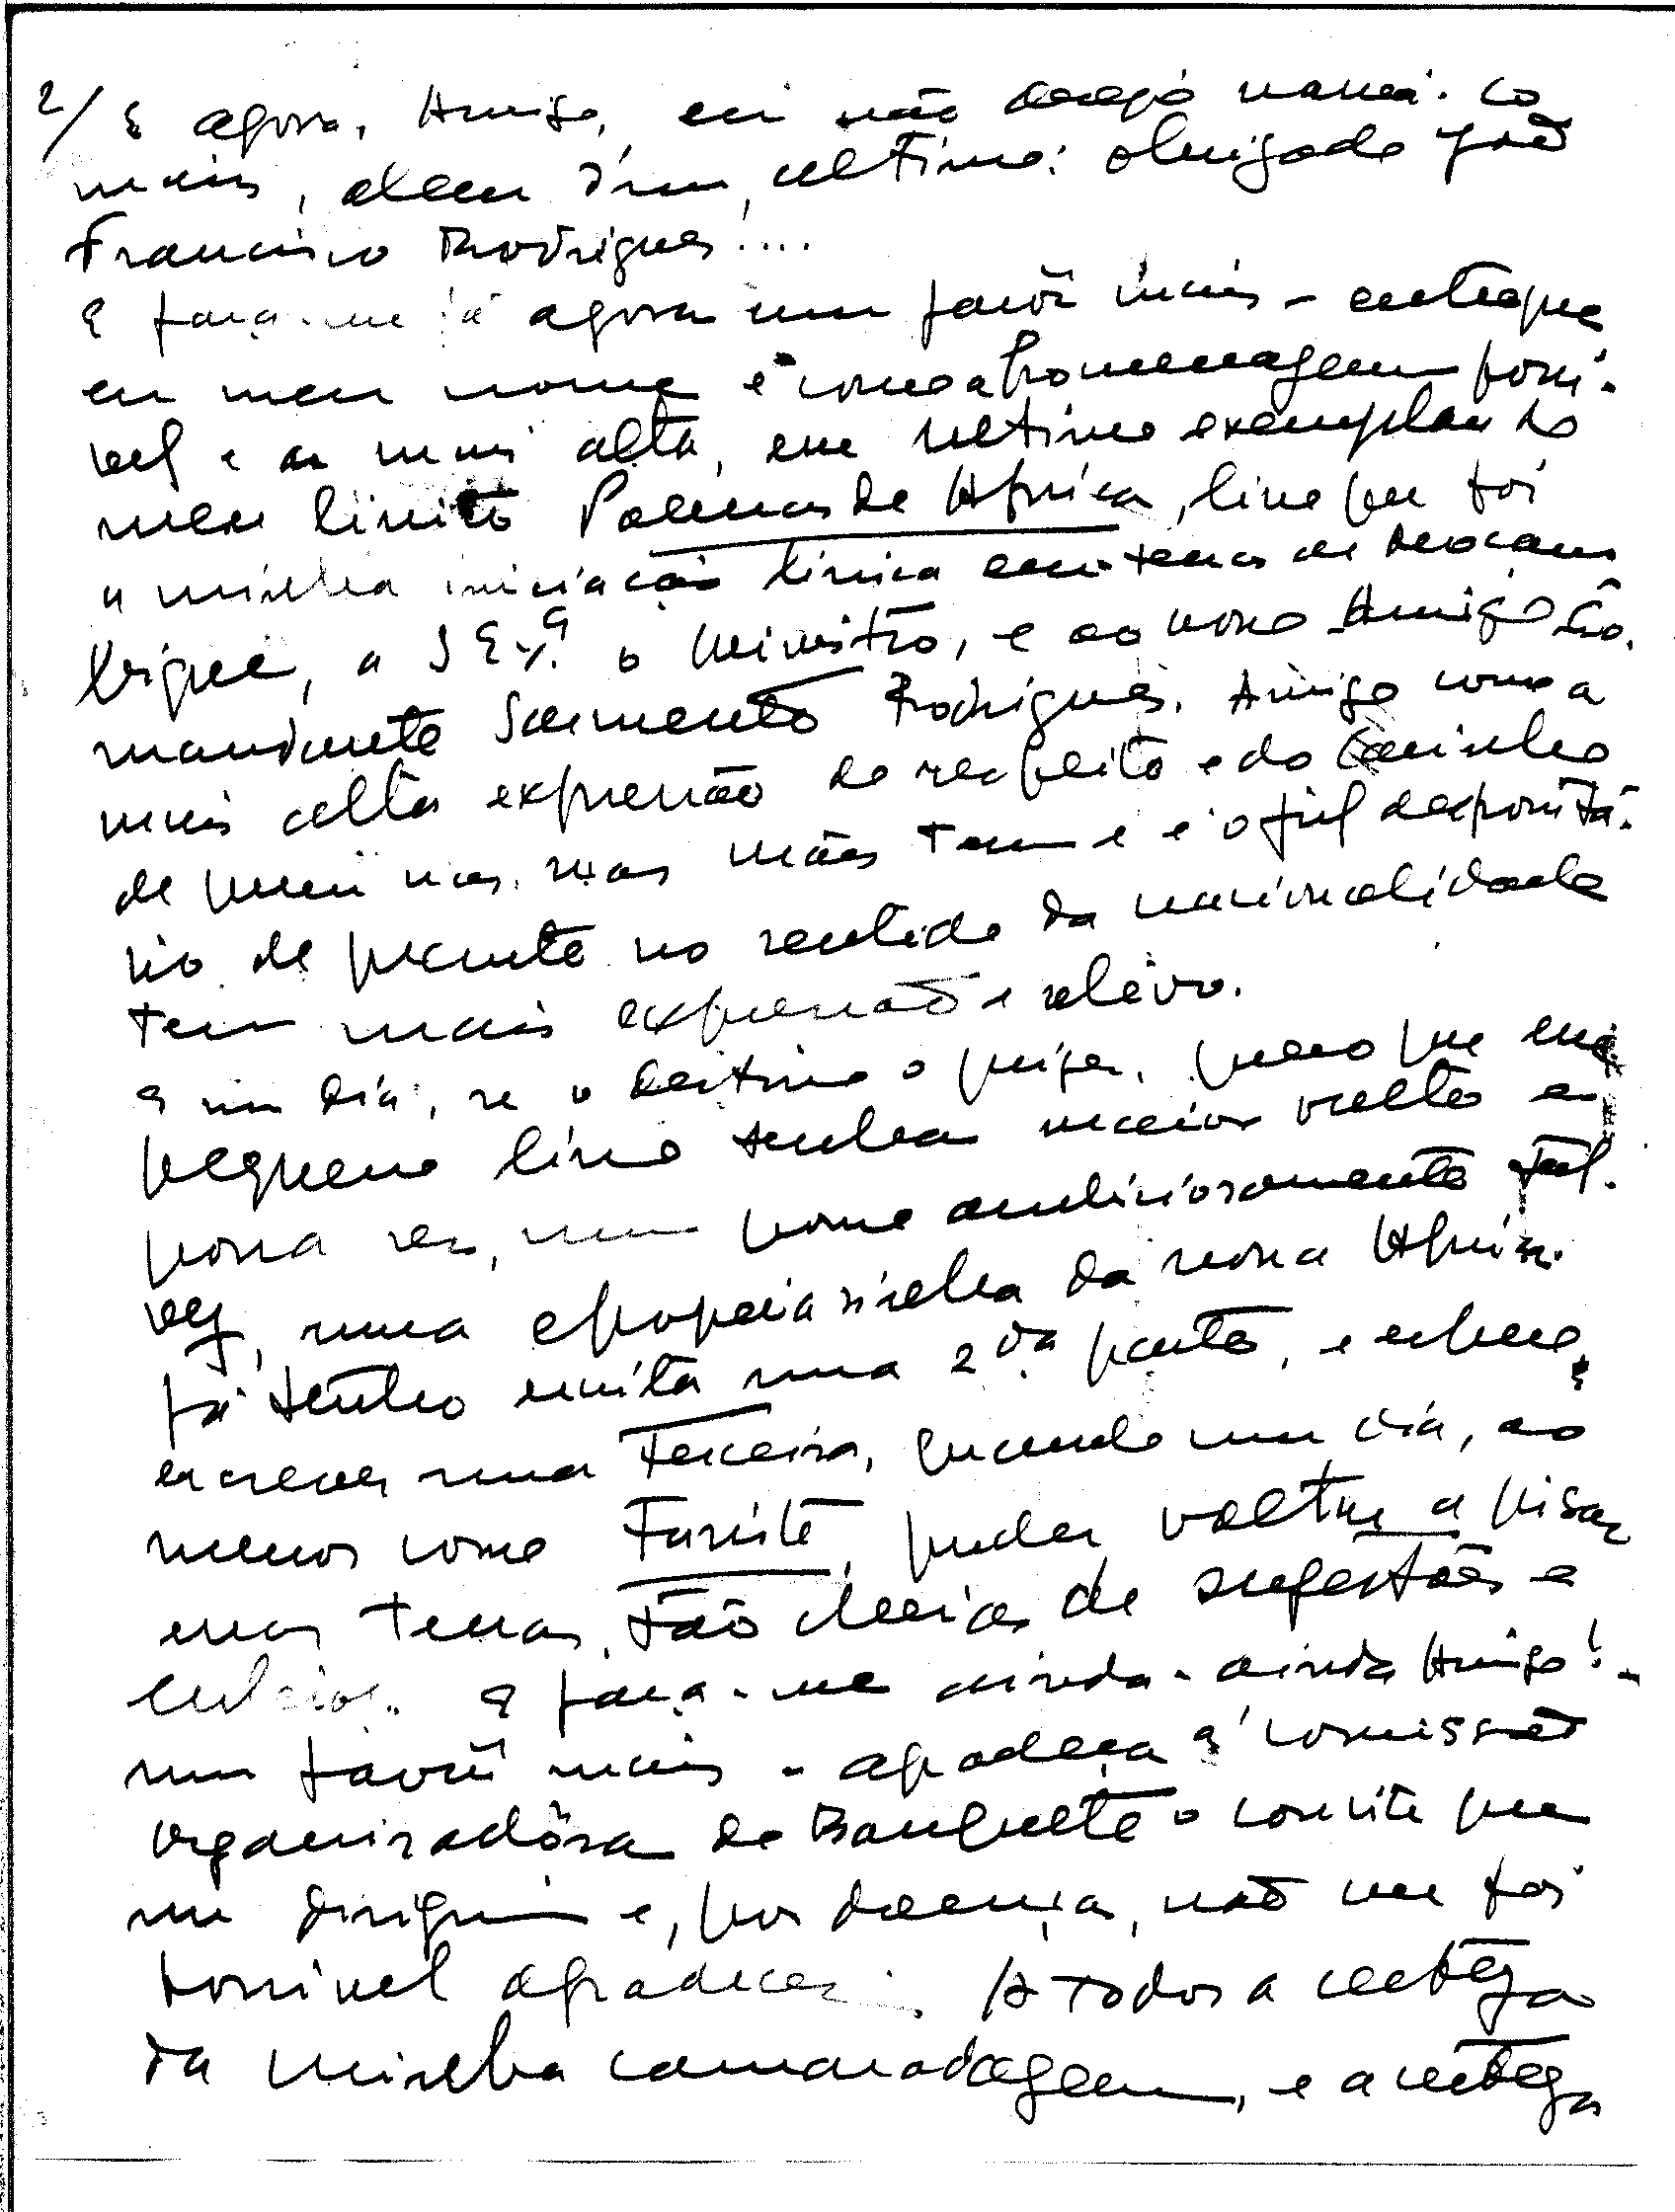 2/ E agora, Amigo, eu não desejo nada
mais, alem d'um, ultimo: obrigado João
Francisco Rodrigues!....
E faça-me já agora um favôr mais - entregue
em meu nome e como a homenagem possi-
vel e a mais alta, um ultimo exemplar do
meu livrito Poemas de Africa, livro que foi
a minha iniciação lirica em terras de Moçam
bique, a S Exª. o Ministro, e ao nosso Amigo Co-
mandante Sarmento Rodrigues. Amigo como a
mais alta expressão do respeito e do carinho
de quem nas suas mãos tem e é o fiel deposita-
rio de quanto no sentido da nacionalidade
tem mais expressão e relêvo.
E um dia, se o destino o quizer, quero que esse
pequeno livro tenha maior vulto e
possa ser, num poema ambiciosamente tal-
vez, uma epopeia da nossa Africa.
Já tenho escrita uma 2da. parte, e espero
escrever uma Terceira, quando um dia, ao
menos como Turista, puder voltar a pisar
essas terras, tão cheias de sugestões e
E faça-me ainda - ainda Amigo! -
um favôr mais - agradeça á comissão
organizadôra do Banquete o convite que
me dirigiu e, por doença, não me foi
possivel agradecer. A todos a certeza
da minha camaradagem, e a certeza